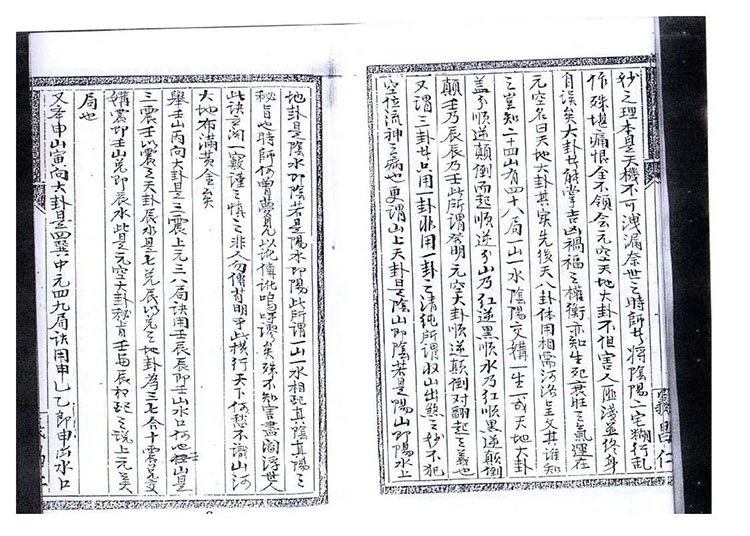 妙之理本是天機不可洩漏奈世之時師廿將陰陽二宅糊行乱
作殊堪痛恨全不領会元空天地大卦不但害人匪淺並終身
自誤矣大卦廿能掌吉凶禍福之權衡亦知生死衰旺之氣運在
元空名曰天地大卦其实先後天八卦体用相需河洛呈文其誰知
之豈知二十四山有四十八局一山一水陰陽交媾一生一成天地大卦
盖分順逆顛倒而起順逆分山乃红逆黑順水乃红順黑逆顛倒
顛壬乃辰辰乃壬此所謂發明元空大卦順逆顛倒对翻起之義也
又謂三卦廿只用一卦非用一卦之清純所謂收山出煞之妙不犯
空位流神之病也更謂山上天卦是陰山即陰若是陽山即陽水上
地卦是陰水即陰若是陽水即陽此所謂一山一水相配真陰真陽之
秘旨也時師何曾夢見以訛傳訛嗚呼謬矣殊不知害盡阎浮世人
此訣玄阎一竅謹之慎之非人勿傳苟明乎此橫行天下何愁不識山河
大地布滿黄金矣
舉壬山丙向大卦是三震上元三八局訣用壬辰辰即壬山水口何也壬山是
三震壬以震之天卦辰水是七兑辰以兑之地卦為三七合十震兑交
媾震即壬山兑即辰水此是元空大卦秘旨壬与辰相起之說上元美
局也
又举申山寅向大卦是四巽中元四九局訣用申乙乙即申出水口
昌仁